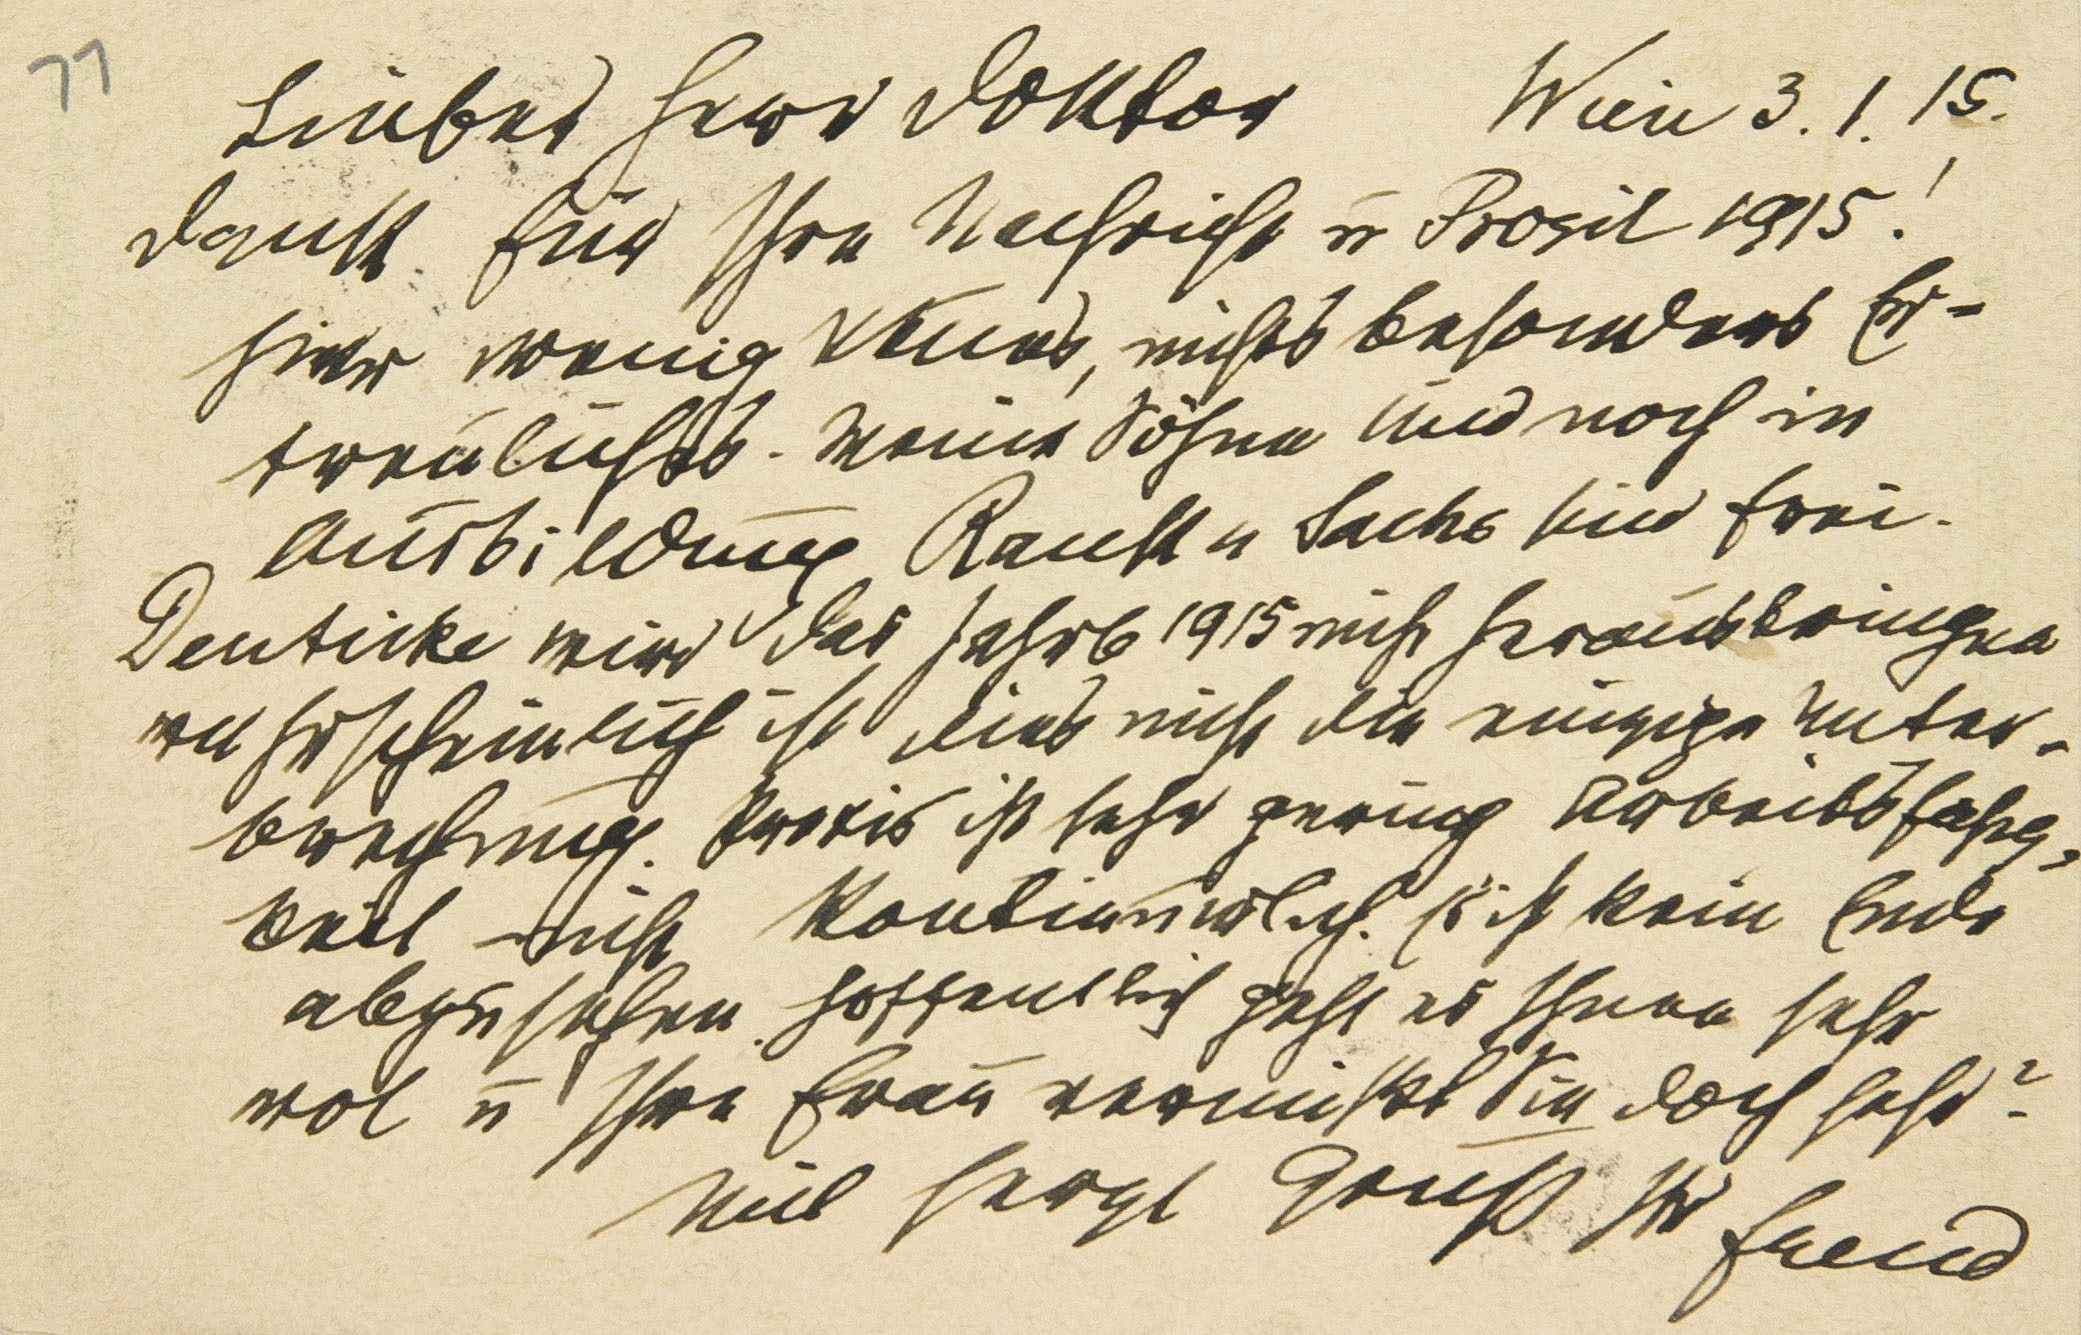 77
Lieber Herr Doktor Wien 3.1.15.
Dank für Ihre Nachricht u Prosit 1915!
Hier wenig Neues, nichts besonders Er-
freulichstes. Meine Söhne sind noch in
Ausbildung Rank u Sachs sind frei.
Deuticke wird das Jahrb 1915 nicht herausbringen
wahrscheinlich ist dies nicht die einzige Unter-
brechung. Praxis ist sehr gering Arbeitsfähig-
keit nicht kontinuirlich. Es ist kein Ende
abzusehen. Hoffentlich geht es Ihnen sehr
wol u Ihre Frau vermißt Sie doch sehr?
Mit herzl Gruß Ihr Freud